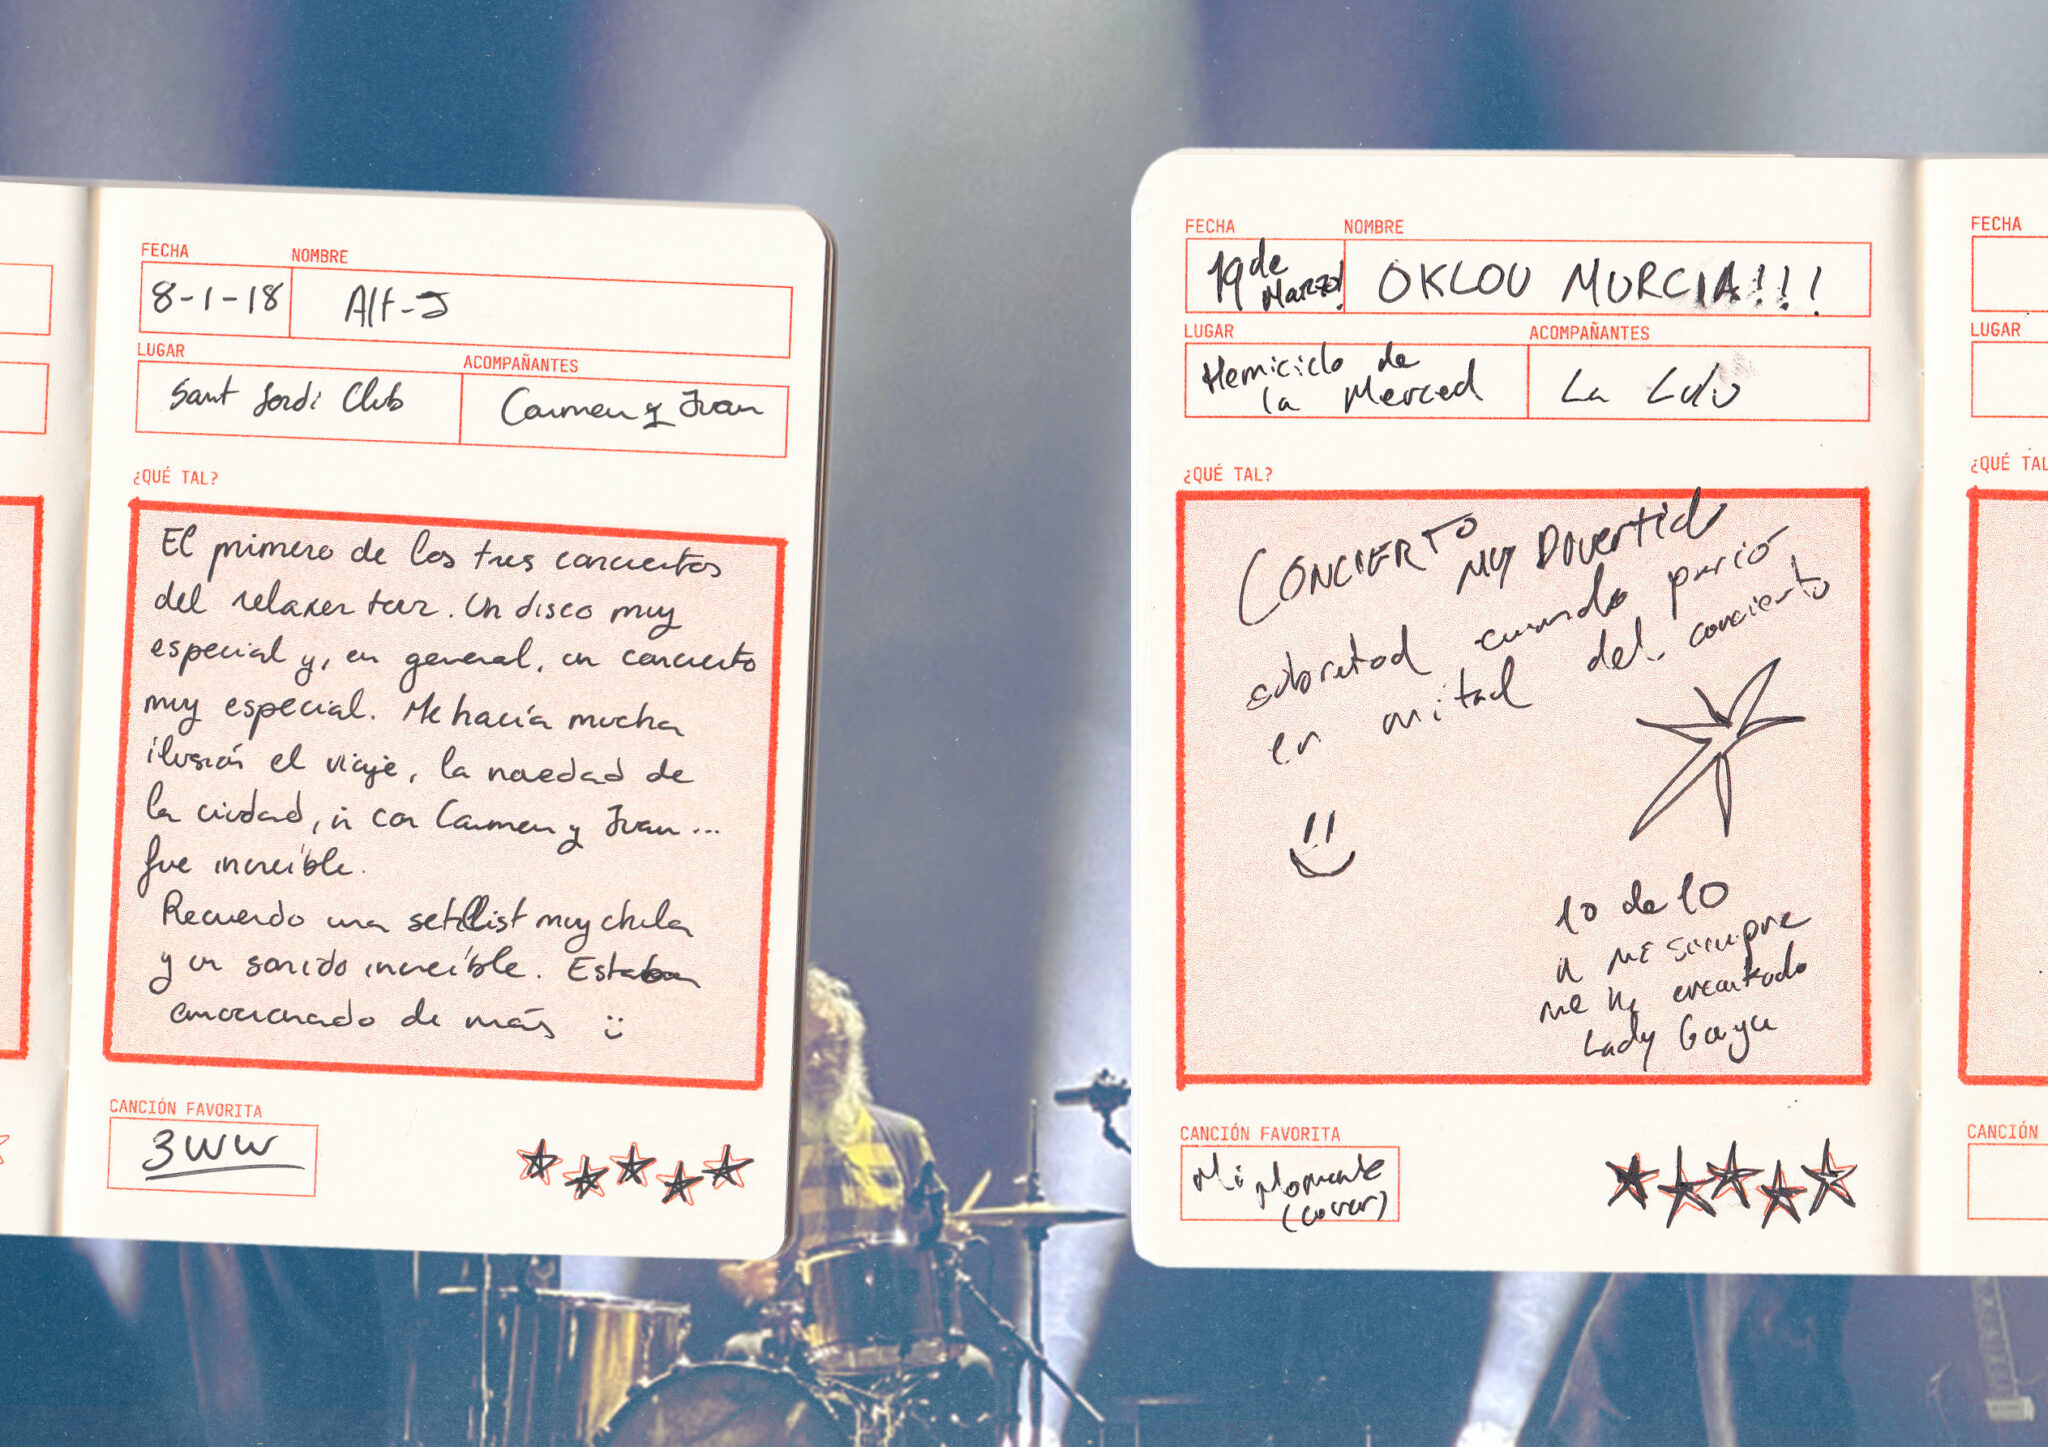 FECHA
NOMBRE
8-1-18
Alt-J
LUGAR
ACOMPAÑANTES
Sant Jordi Club
Carmen y Juan
¿QUÉ TAL?
El primero de los tres conciertos
del relaxer tour. Un disco muy
especial y, en general, un concierto
muy especial. Me hacía mucha
ilusión el viaje, la novedad de
la ciudad, ir con Carmen y Juan...
fue increíble.
Recuerdo una setlist muy chula
y un sonido increíble. Estaba
emocionado de más
CANCIÓN FAVORITA
3WW
FECHA
NOMBRE
19 de
Marzo!
OKLOU MURCIA!!!
LUGAR
ACOMPAÑANTES
Hemiciclo de
la Merced
La Lulu
¿QUÉ TAL?
CONCIERTO
MUY DIVERTID
sobretod cuando parió
en mitad del concierto
10 de 10
a mi siempre
me ha encantado
Lady Gaga
CANCIÓN FAVORITA
Mi Momento
(cover)
FECHA
LUGAR
¿QUÉ TAL
CANCIÓN